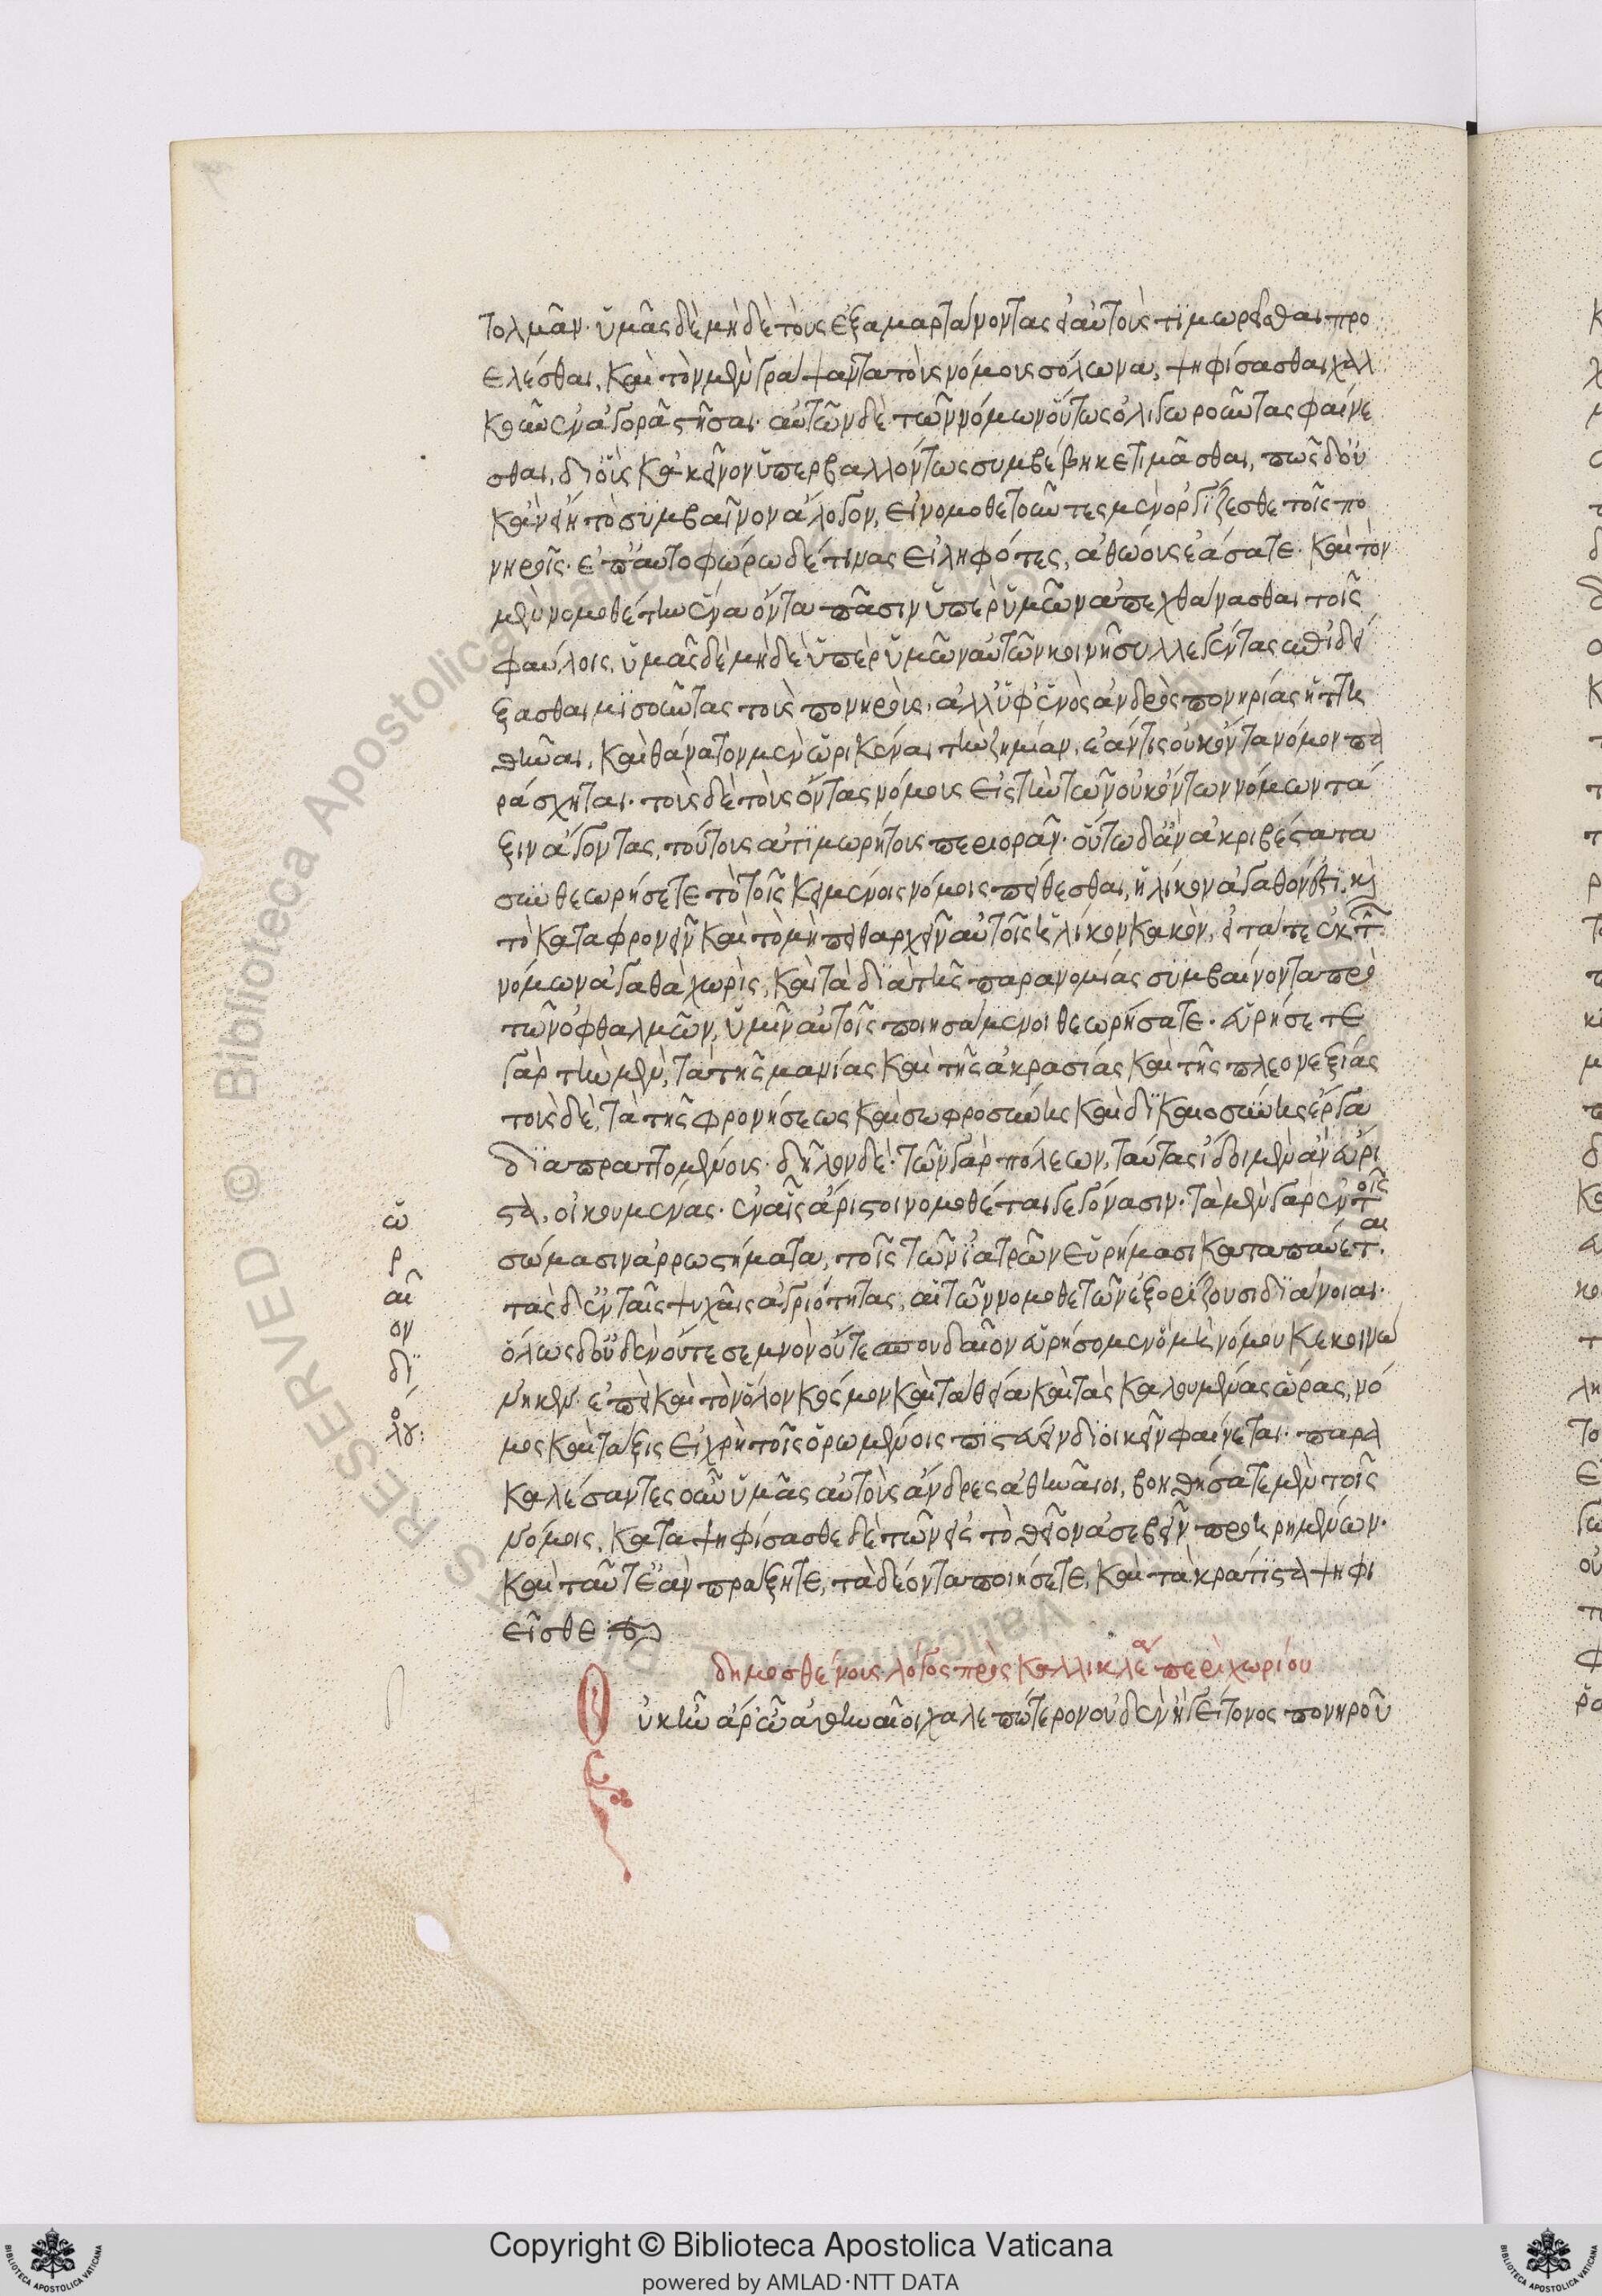 τολμᾶν· ὑμᾶς δὲ μὴ δὲ τοὺς ἐξαμαρτάνοντας εἰς αὐτοὺς τιμωρεῖσθαι προ
ελέσθαι, καὶ τὸν μὲν γράψαντα τοὺς νόμους σόλωνα, ψηφίσασθαι χαλ
κοῦν ἐν ἀγορᾷ στῆσαι· αὐτῶν δὲ τῶν νόμων οὕτως ὀλιγωροῦντας φαίνε
σθαι, δι οὓς κἀκεῖνον ὑπερβαλλόντως συμβέβηκε τιμᾶσθαι, πῶς δ οὐ
κ ἂν εἴη τὸ συμβαῖνον ἄλογον, εἰ νομοθετοῦντες μὲν ὀργίζεσθε τοῖς πο
νηροῖς· ἐπ αὐτοφώρω δέ τινας εἰληφότες, ἀθώους ἐάσατε· καὶ τὸν
μὲν νομοθέτην ἕνα ὄντα πᾶσιν ὑπὲρ ὑμῶν ἀπεχθάνασθαι τοῖς
φαύλοις, ὑμᾶς δὲ μὴ δὲ ὑπὲρ ὑμῶν αὐτῶν κοινῆ συλλεγέντας ἐπιδεί
ξασθαι μισοῦντας τοὺς πονηροὺς, ἀλλ ὑφ ἑνὸς ἀνδρὸς πονηρίας ἡττη
θῆναι, καὶ θάνατον μὲν ὡρικέναι τὴν ζημίαν, ἐάν τις οὐκ ὄντα νόμον πα
ράσχηται· τοὺς δὲ τοὺς ὄντας νόμους εἰς τὴν τῶν οὐκ ὄντων νόμων τά
ξιν ἄγοντας, τούτους ἀτιμωρήτους περιορᾶν· οὕτω δ ἂν ἀκριβέστατα
συνθεωρήσετε τὸ τοῖς κειμένοις νόμοις πείθεσθαι, ἡλίκον ἀγαθόν ἐστι, καὶ
τὸ καταφρονεῖν καὶ τὸ μὴ πειθαρχεῖν αὐτοῖς ἡλίκον κακὸν, εἰ τά τε ἐκ τῶν
νόμων ἀγαθὰ χωρὶς, καὶ τὰ διὰ τῆς παρανομίας συμβαίνοντα πρὸ
τῶν ὀφθαλμῶν, ὑμῖν αὐτοῖς ποιησάμενοι θεωρήσατε· εὑρήσετε
γὰρ τὴν μὲν, τὰ τῆς μανίας καὶ τῆς ἀκρασίας καὶ τῆς πλεονεξίας
τοὺς δὲ, τὰ τῆς φρονήσεως καὶ σωφροσύνης καὶ δικαιοσύνης ἔργα
διαπραττομένους· δῆλον δὲ· τῶν γὰρ πόλεων, ταύτας ἴδοιμεν ἂν ἄρι
στα, οἰκουμένας· ἐν αἷς ἄριστοι νομοθέται γεγόνασιν· τὰ μὲν γὰρ ἐν τοῖς
σώμασιν ἀρρωστήματα, τοῖς τῶν ἰατρῶν εὑρήμασι καταπαύεται.
τὰς δ ἐν ταῖς ψυχαῖς ἀγριότητας, αἱ τῶν νομοθετῶν ἐξορίζουσι διάνοιαι·
ὅλως δ οὐδὲν οὔτε σεμνὸν οὔτε σπουδαῖον εὑρήσομεν ὃ μὴ νόμου κεκοινώ
νηκεν· ἐπεὶ καὶ τὸν ὅλον κόσμον καὶ τὰ θεῖα καὶ τὰς καλουμένας ὥρας, νό
μος καὶ τάξις εἰ χρὴ τοῖς ὁρωμένοις πιστεύειν διοικεῖν φαίνεται· παρα
καλέσαντες οὖν ὑμᾶς αὐτοὺς ἄνδρες ἀθηναῖοι, βοηθήσατε μὲν τοῖς
νόμοις, καταψηφίσασθε δὲ τῶν εἰς τὸ θεῖον ἀσεβεῖν προηρημένων·
καὶ ταῦτ ἐὰν πράξητε, τὰ δέοντα ποιήσετε, καὶ τὰ κράτιστα ψηφι
εῖσθε :
ὥ
ρ
αι
ον
δι
ὅ
λου:
δημοσθένους λόγος πρὸς καλλικλέα περὶ χωρίου
Οὐκ ἦν ἄρ ὦ ἀθηναῖοι χαλεπώτερον οὐδὲν ἢ γείτονος πονηροῦ
Copyright © Biblioteca Apostolica Vaticana
powered by AMLAD·NTT DATA